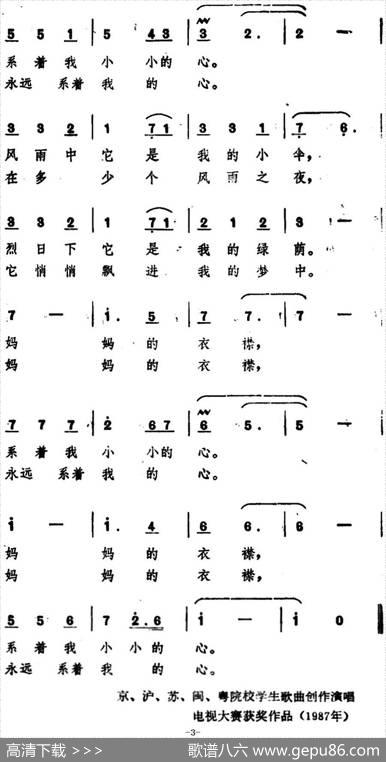 5 5 1 | 5 4 3 | 3 2. | 2 —
系着我 小 小的 心。
永远 系着 我 的 心。
3 3 2 | 1 7 1 | 3 3 1 | 7 6.
风雨中 它 是 我的小 伞,
在多 少 个 风雨之 夜,
3 3 2 | 1 7 1 | 2 1 2 | 3 —
烈日下 它 是 我的绿 荫。
它悄悄 飘 进 我的梦 中。
7 — | i. 5 | 7 7. | 7 —
妈 妈 的 衣 襟,
妈 妈 的 衣 襟,
7 7 7 | 2 6 7 | 6 5. | 5 —
系着我 小 小的 心。
永远 系着 我 的 心。
i — | i. 4 | 6 6. | 6 —
妈 妈 的 衣 襟,
妈 妈 的 衣 襟,
5 5 6 | 7 2.6 | i — | i 0
系着我 小 小的 心。
永远 系着 我 的 心。
京、沪、苏、闽、粤院校学生歌曲创作演唱
电视大赛获奖作品(1987年)
-3-
高清下载 >>> 歌谱八六 www.gepu86.com